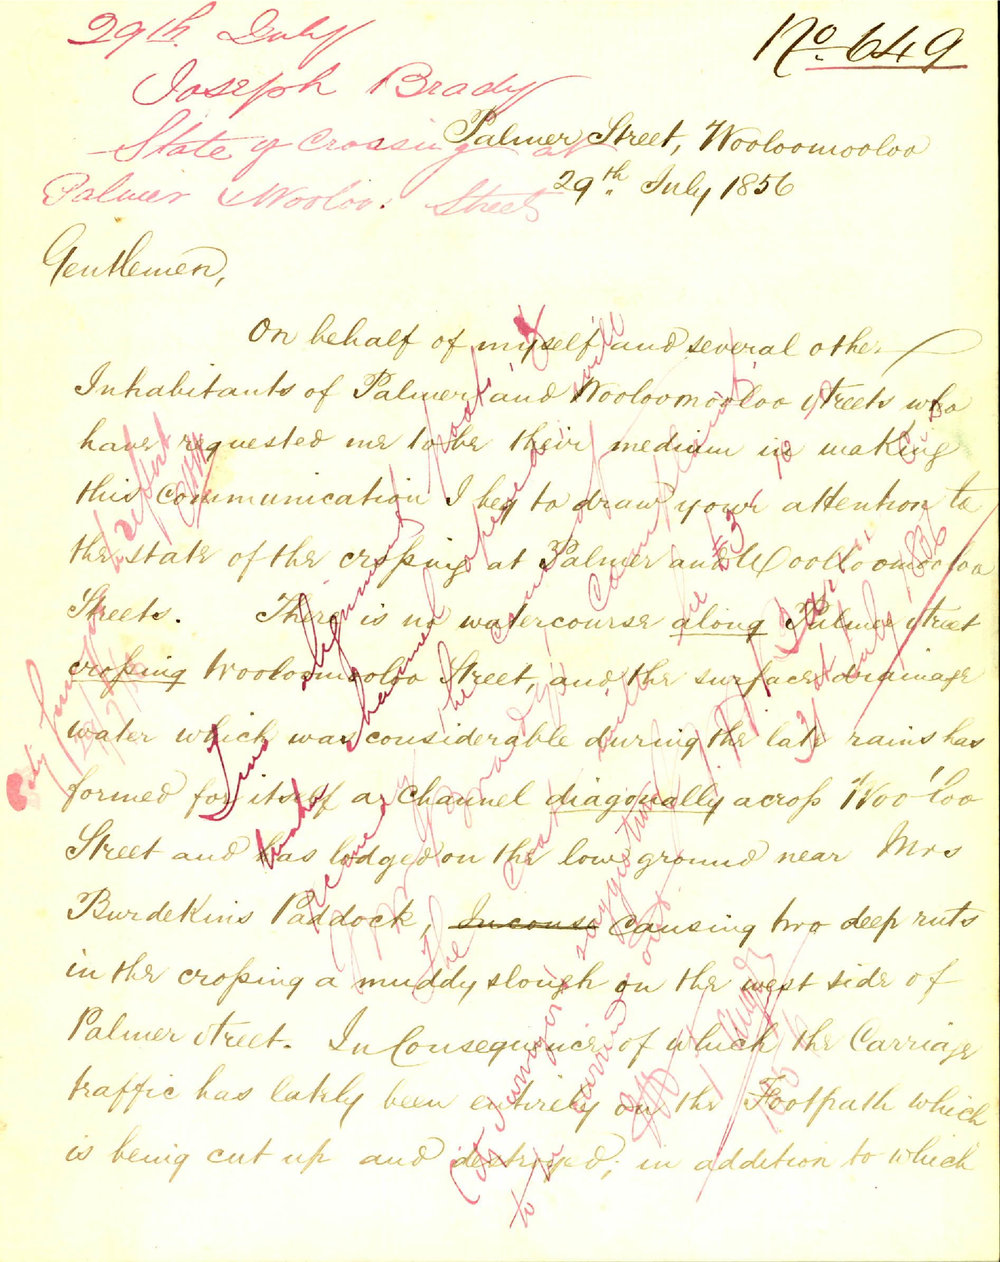 No. 649
29th July
Joseph Brady
State of Crossing at
Palmer & Wooloo. Streets
Palmer Street, Wooloomooloo
29th July 1856
Gentlemen,
On behalf of myself and several other
Inhabitants of Palmer and Wooloomooloo streets who
have requested me to be their medium in making
this communication I beg to draw your attention to
the state of the crossing at Palmer and Wooloomooloo
Streets. There is no watercourse along Palmer street
crossing Wooloomooloo Street, and the surface drainage
water which was considerable during the late rains has
formed for itself a channel diagonally across Woo'loo
Street and has lodged on the low ground near Mrs
Burdekins Paddock, Inconse causing two deep ruts
in the crossing a muddy slough on the west side of
Palmer street. In Consequence of which the Carriage
traffic has lately been entirely on the Footpath which
is being cut up and destroyed; in addition to which
City Surveyor
to report
Two alignment posts &
channel opened will
remedy the
Mr Brady's complaint
The cost will be £3.10
31st July 1856
City Surveyor's suggestion
to be carried out
1 Aug
1856